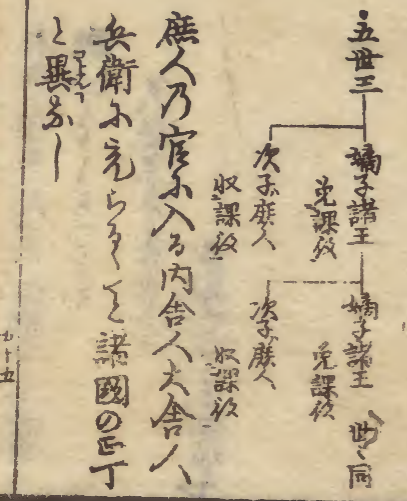 五世王
嫡子諸王 免課役
嫡子諸王 免課役 世々同
次子庶人 収課役
次子庶人 収課役
庶人乃官に入る内舎人大舎人
兵衛に充らるゝも諸國の正丁
と異なし
七十五